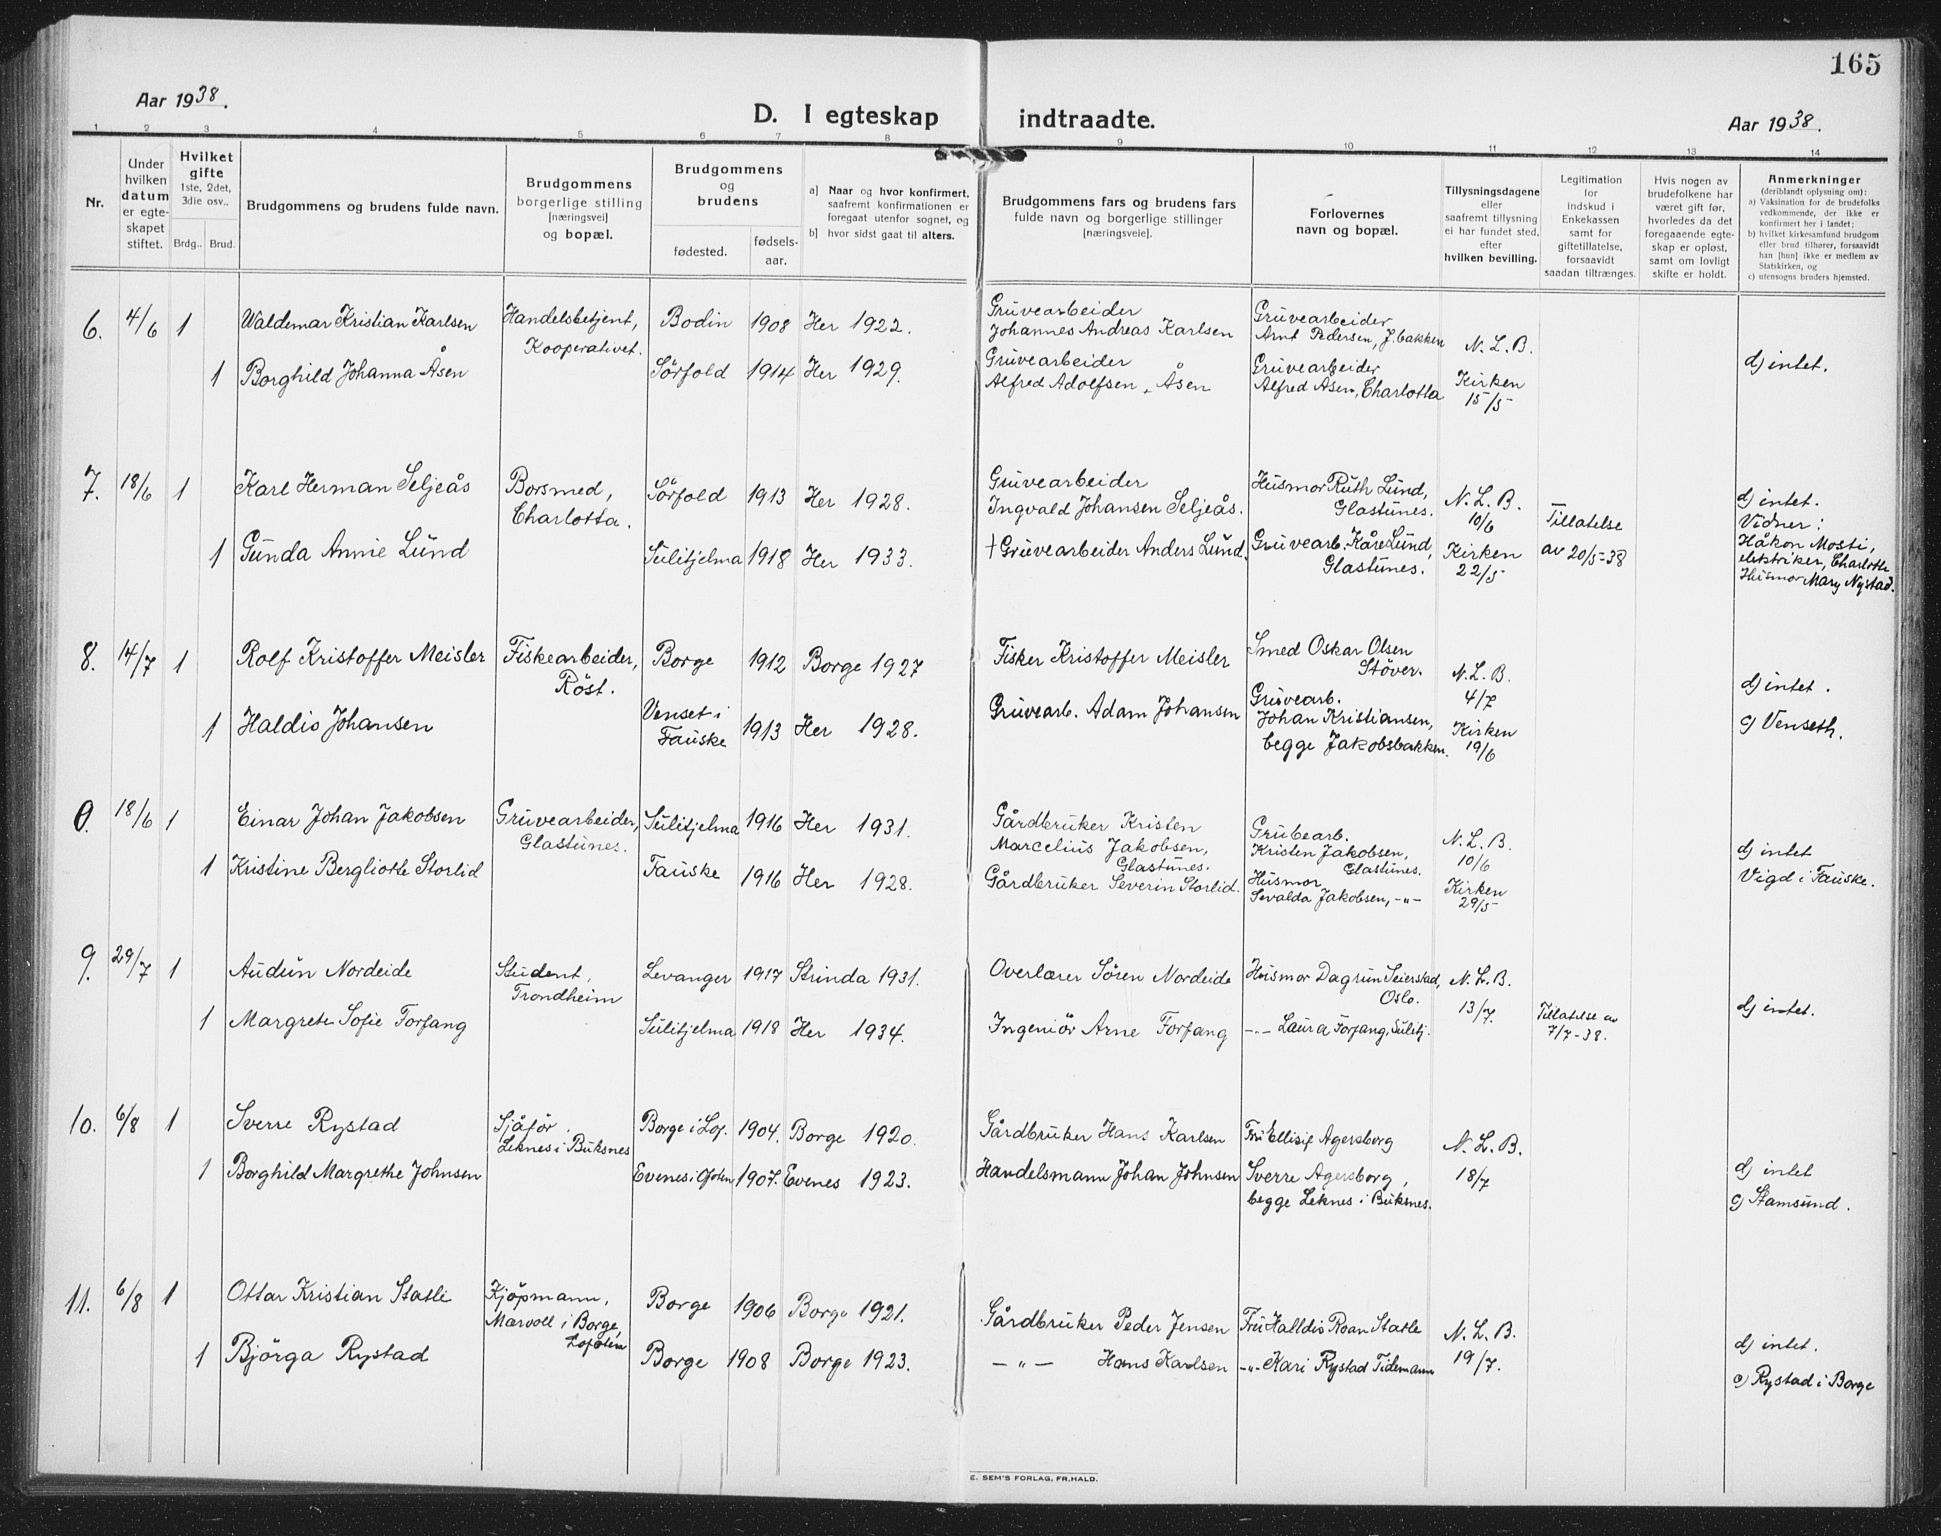 165
Aar 1938.
D. I egteskap indtraadte.
Aar 1938.
1 2 3 4 5 6 7 8 9 10 11 12 13 14
Nr.
Under hvilken datum er egteskapet stiftet.
Hvilket gifte 1ste, 2det, 3die osv..
Brdg.. Brud.
Brudgommens og brudens fulde navn.
Brudgommens borgerlige stilling [næringsvei] og bopæl.
Brudgommens og brudens
fødested.
fødsels-aar.
a) Naar og hvor konfirmert, saafremt konfirmationen er foregaat utenfor sognet, og
b) hvor sidst gaat til alters.
Brudgommens fars og brudens fars fulde navn og borgerlige stillinger [næringsveie].
Forlovernes navn og bopæl.
Tillysningsdagene eller saafremt tillysning ei har fundet sted, efter hvilken bevilling.
Legitimation for indskud i Enkekassen samt for giftetillatelse, forsaavidt saadan tiltrænges.
Hvis nogen av brudefolkene har været gift før, hvorledes da det foregaaende egteskap er opløst, samt om lovligt skifte er holdt.
Anmerkninger
(deriblandt oplysning om):
a) Vaksination for de brudefolks vedkommende, der ikke er konfirmert her i landet;
b) hvilket kirkesamfund brudgom eller brud tilhører, forsaavidt han [hun] ikke er medlem av Statskirken, og
c) utensogns bruders hjemsted.
6. 4/6 1 Waldemar Kristian Karlsen
Handelsbetjent,
Kooperativet.
Bodin 1908 Her 1922.
Gruvearbeider
Johannes Andreas Karlsen
Gruvearbeider
Arnt Pedersen, J.bakken
N. L. B.
1 Borghild Johanna Åsen
Sörfold 1914 Her 1929.
Gruvearbeider
Alfred Adolfsen Åsen
Gruvearbeider
Alfred Åsen, Charlotta
Kirken
15/5
d) intet.
7. 18/6 1 Karl Herman Seljeås
Borsmed,
Charlotta.
Sörfold 1913 Her 1928.
Gruvearbeider
Ingvald Johansen Seljeås.
Husmor Ruth Lund,
Glastunes.
N. L. B.
10/6
1 Gunda Annie Lund
Sulitjelma 1918 Her 1933.
† Gruvearbeider Anders Lund.
Gruvearb. Kåre Lund,
Glastunes.
Kirken
22/5
Tillatelse
av 20/5-38
d) intet.
Vidner:
Håkon Mosti,
elektriker, Charlotte
Husmor Mary Nystad.
8. 14/7 1 Rolf Kristoffer Meisler
Fiskearbeider,
Röst.
Borge 1912 Borge 1927
Fisker Kristoffer Meisler
Smed Oskar Olsen
Stöver.
N. L. B.
4/7
1 Haldis Johansen
Venset i
Fauske
1913 Her 1928.
Gruvearb. Adam Johansen
Gruvearb.
Johan Kristiansen,
begge Jakobsbakken.
Kirken
19/6
d) intet.
c) Venseth.
0. 18/6 1 Einar Johan Jakobsen
Gruvearbeider,
Glastunes.
Sulitjelma 1916 Her 1931.
Gårdbruker Kristen
Marcelius Jakobsen,
Glastunes.
Grubearb.
Kristen Jakobsen,
Glastunes.
N. L. B.
10/6
1 Kristine Bergliotte Storlid
Fauske 1916 Her 1928.
Gårdbruker Severin Storlid.
Husmor
Sevalda Jakobsen, -"-
Kirken
29/5
d) intet
Vigd i Fauske.
9. 29/7 1 Audun Nordeide
Student,
Trondheim
Levanger 1917 Strinda 1931.
Overlærer Sören Nordeide
Husmor Dagrun Seierstad,
Oslo.
N. L. B.
13/7.
1 Margrete Sofie Forfang
Sulitjelma 1918 Her 1934.
Ingeniör Arne Forfang
-"- Laura Forfang, Sulitj.
Tillatelse av
7/7-38.
d) intet.
10. 6/8 1 Sverre Rystad
Sjåför,
Leknes i Buksnes
Borge i Lof. 1904. Borge 1920.
Gårdbruker Hans Karlsen
Fru Ellisif Agersborg
N. L. B.
18/7
1 Borghild Margrethe Johnsen
Evenes i Ofoten 1907. Evenes 1923.
Handelsmann Johan Johnsen
Sverre Agersborg,
begge Leknes i Buksnes.
d) intet
c) Stamsund.
11. 6/8 1 Ottar Kristian Statle
Kjöpmann,
Mærvoll i Borge,
Lofoten
Borge 1906 Borge 1921.
Gårdbruker Peder Jensen
Fru Halldis Roan Statle
N. L. B.
19/7.
1 Bjørga Rystad
Borge 1908 Borge 1923.
-"- Hans Karlsen
-"- Kari Rystad Tidemann
d) intet.
c) Rystad i Borge
E. SEM'S FORLAG, FR.HALD.